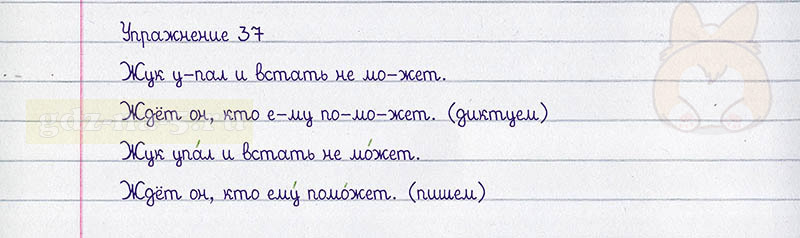 Упражнение 37
Жук у-пал и встать не мо-жет.
Ждёт он, кто е-му по-мо-жет. (диктуем)
Жук упа́л и встать не мо́жет.
Ждёт он, кто ему́ помо́жет. (пишем)